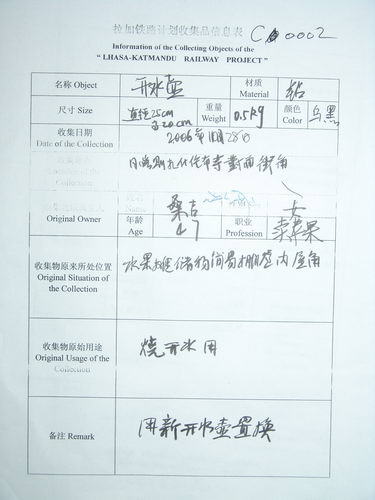 拉加铁路计划收集品信息表
C 0002
Information of the Collecting Objects of the
“ LHASA-KATMANDU RAILWAY PROJECT ”
名称 Object 开水壶 材质 Material 铝
尺寸 Size 直径25cm 高20cm 重量 Weight 0.5kg 颜色 Color 乌黑
收集日期 Date of the Collection 2006年10月28日
Collection 日喀则扎什 寺对面街角
Original Owner 桑吉
年龄 Age 47 职业 Profession 卖苹果
收集物原来所处位置 Original Situation of the Collection 水果摊储物简易棚屋内屋角
收集物原始用途 Original Usage of the Collection 烧开水用
备注 Remark 用新开水壶置换